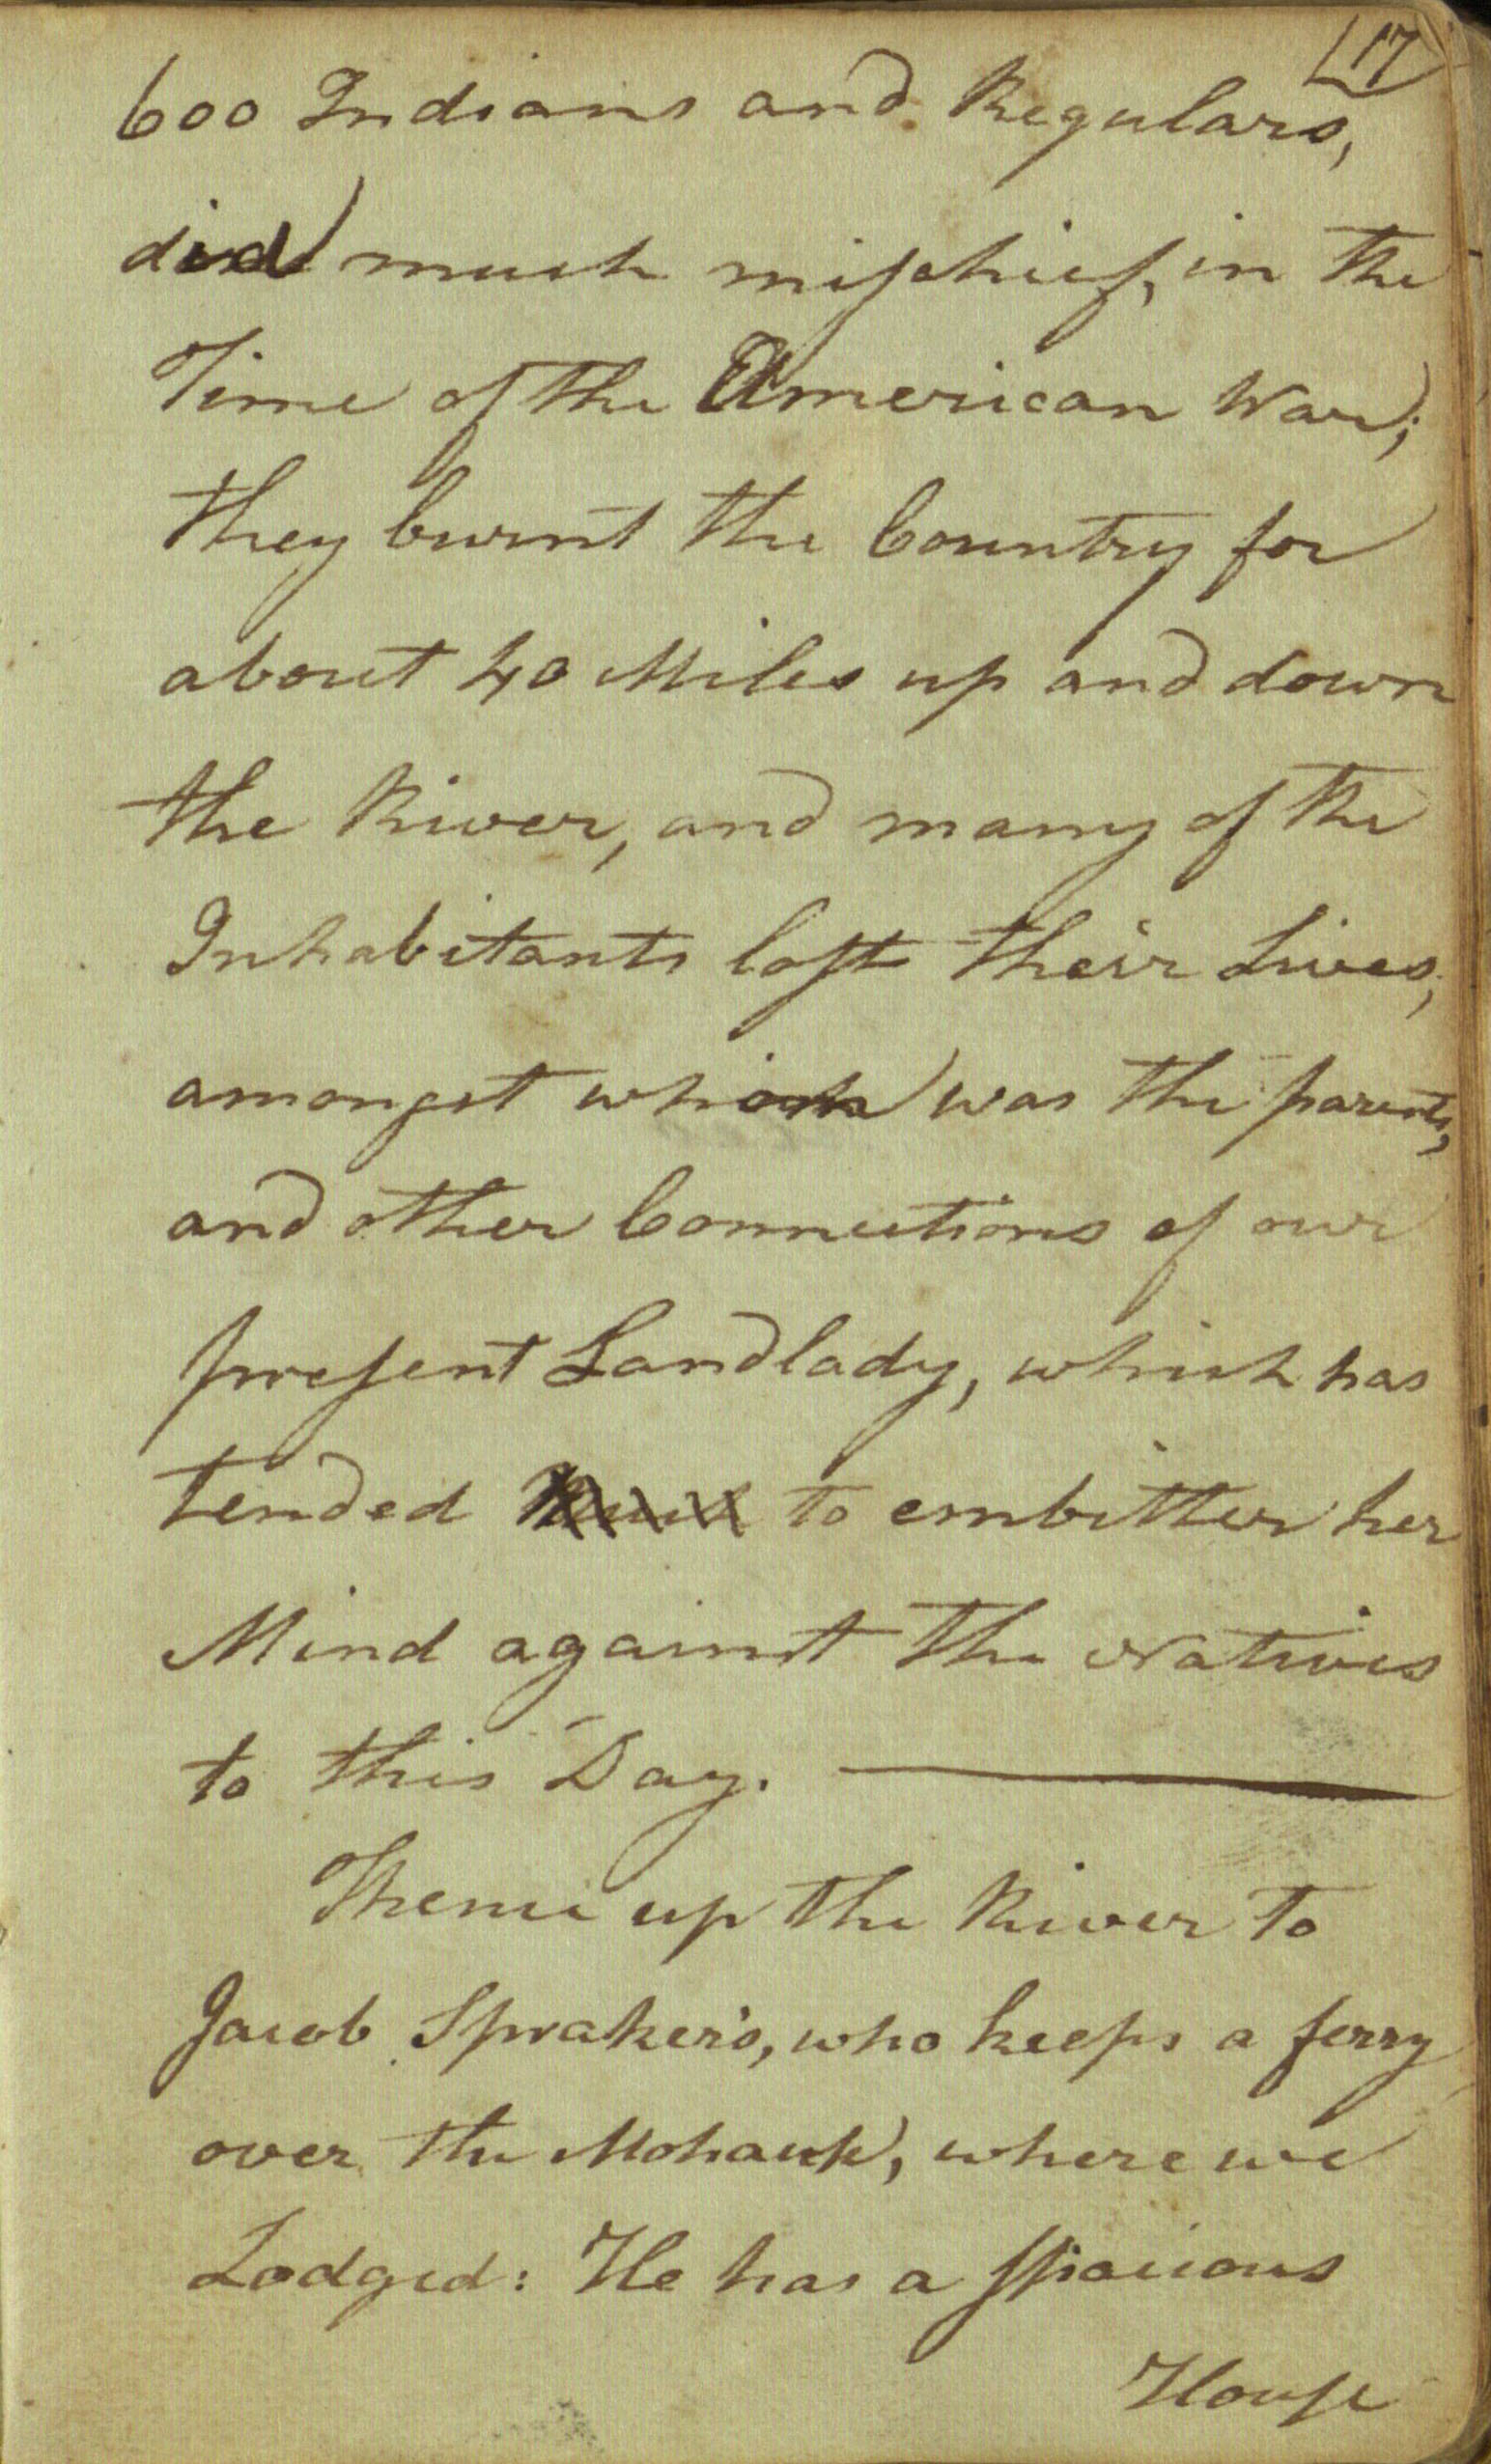 17
600 Indians and Regulars,
did much miſchief, in the
Time of the American War;
they burnt the Country for
about 40 Miles up and down
the River, and many of the
Inhabitants loſt their Lives,
amongst whom was the parents,
and other Connections of our
preſent Landlady, which has
tended to embitter her
Mind against the Natives
to this Day.
Thence up the River to
Jacob Spraker's, who keeps a ferry
over the Mohawk, where we
Lodged: He has a ſpacious
Houſe